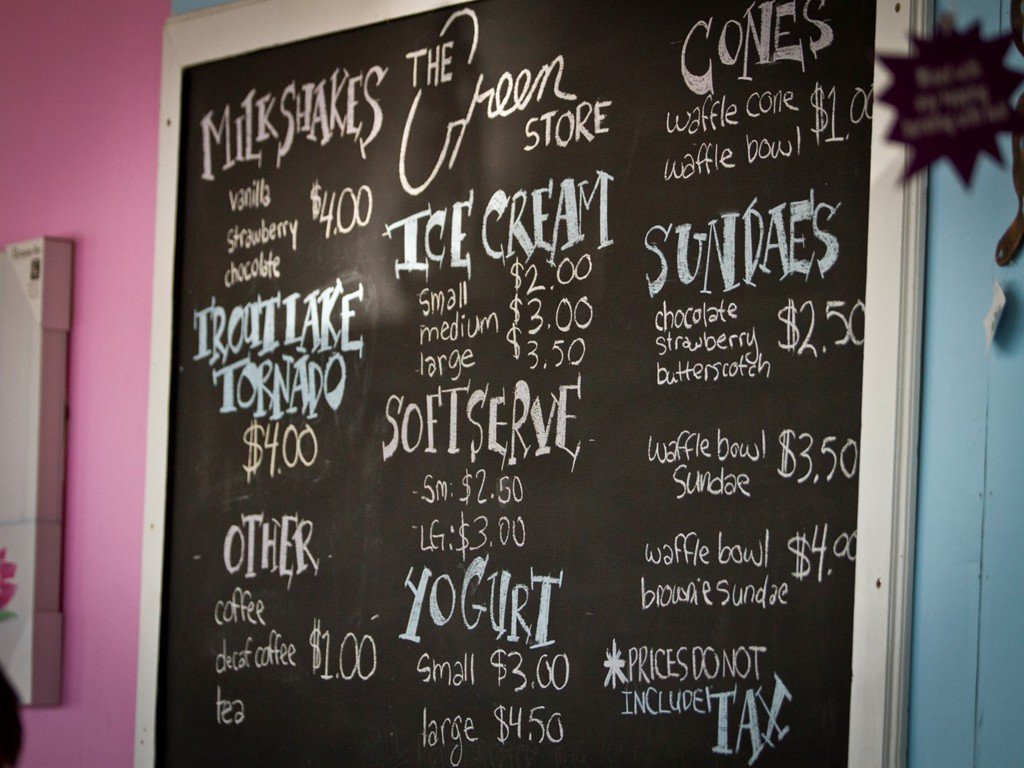 THE
Green
STORE
MILKSHAKES
vanilla
strawberry $4.00
chocolate
TROUT LAKE
TORNADO
$4.00
OTHER
coffee
decaf coffee $1.00
tea
ICE CREAM
small $2.00
medium $3.00
large $3.50
SOFT SERVE
-Sm: $2.50
-LG: $3.00
YOGURT
small $3.00
large $4.50
CONES
waffle cone $1.00
waffle bowl
SUNDAES
chocolate
strawberry $2.50
butterscotch
waffle bowl $3.50
Sundae
waffle bowl $4.00
brownie Sundae
*PRICES DO NOT
INCLUDE TAX